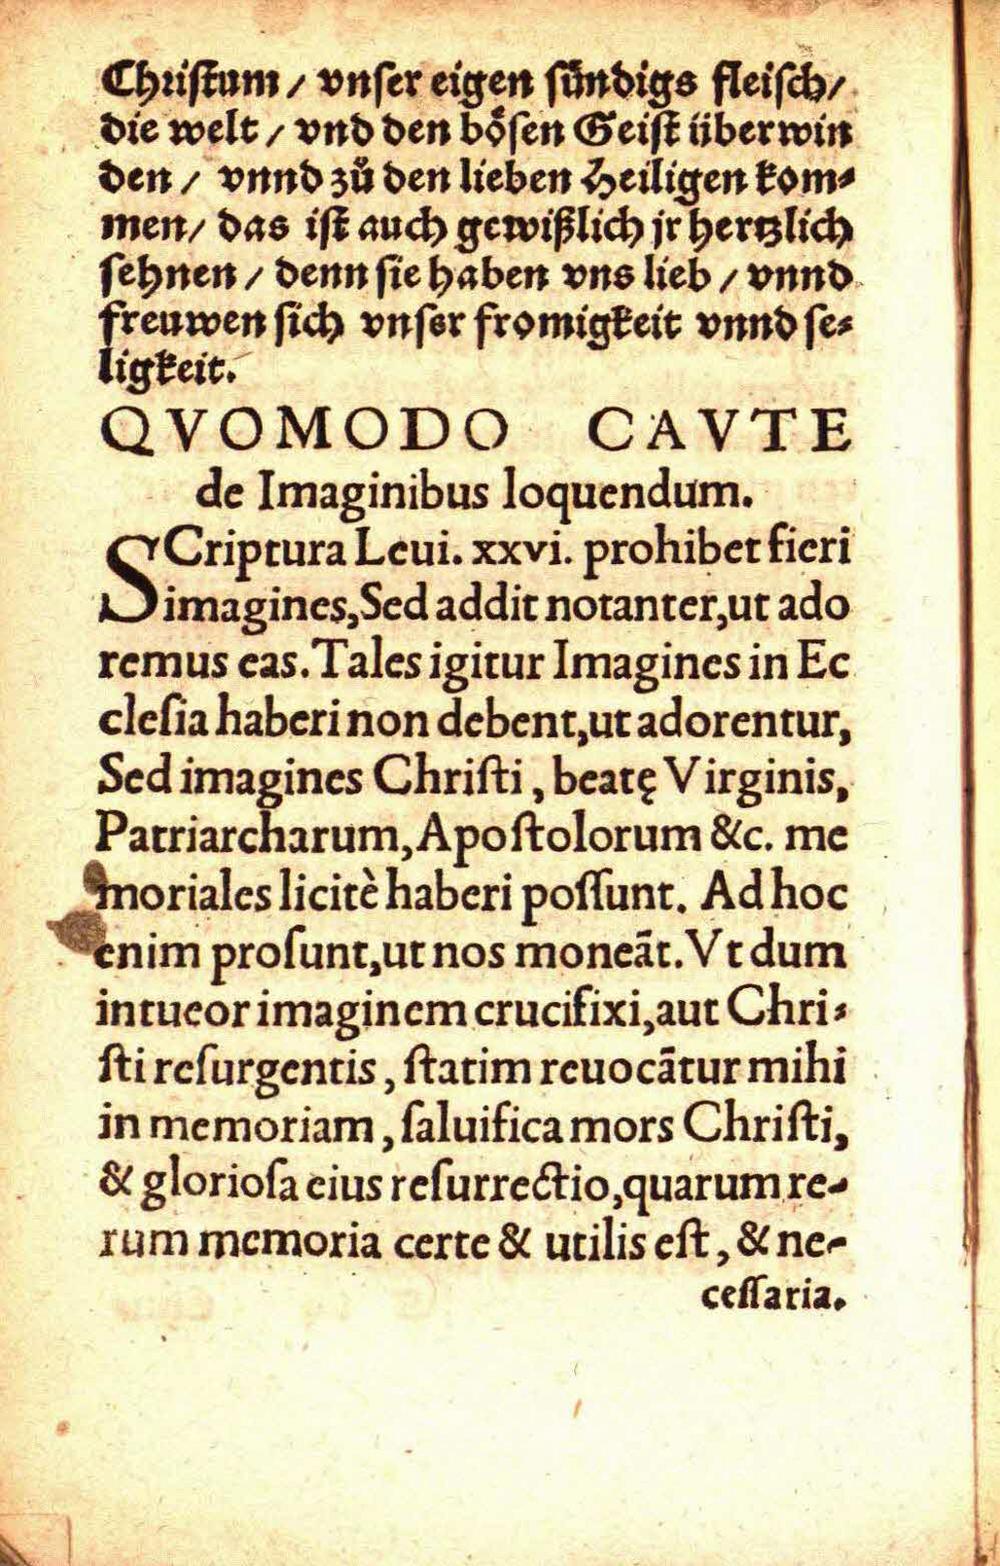 Christum / vnser eigen sündigs fleisch /
die welt / vnd den bösen Geist überwin
den / vnnd zů den lieben Heiligen kom⸗
men / das ist auch gewißlich jr hertzlich
sehnen / denn sie haben vns lieb / vnnd
freuwen sich vnser fromigkeit vnnd se⸗
ligkeit.
QVOMODO CAVTE
de Imaginibus loquendum.
SCriptura Leui. xxvi. prohibet fieri
imagines, Sed addit notanter, ut ado
remus eas. Tales igitur Imagines in Ec
cleſia haberi non debent, ut adorentur,
Sed imagines Chriſti, beatę Virginis,
Patriarcharum, Apoſtolorum &c. me
moriales licitè haberi poſſunt. Ad hoc
enim proſunt, ut nos moneãt. Vt dum
intueor imaginem crucifixi, aut Chri⸗
ſti reſurgentis, ſtatim reuocãtur mihi
in memoriam, ſaluifica mors Chriſti,
& glorioſa eius reſurrectio, quarum re-
rum memoria certe & utilis eſt, & ne-
ceſſaria.